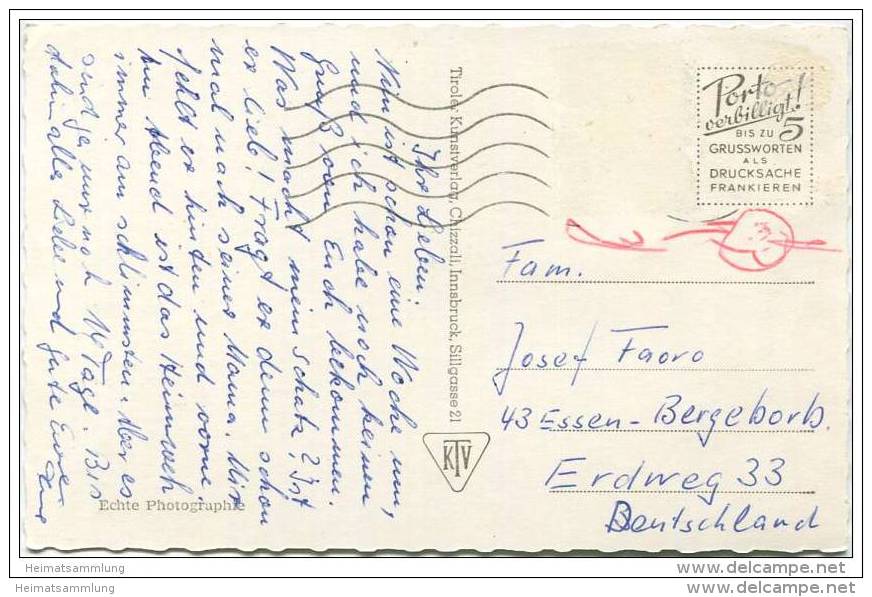 Ihr Lieben!
Nun ist schon eine Woche um,
und ich habe noch keinen
Gruß von Euch bekommen.
Was macht mein Schatz? Ist
er lieb! Fragt er denn schon
mal nach seiner Mama. Mir
fehlt er hinten und vorne.
Am Abend ist das Heimweh
immer am schlimmsten. Aber es
sind ja nur noch 14 Tage. Bis
dahin alles Liebe und Gute Eure
Echte Photographie
Tiroler Kunstverlag, Chizzali, Innsbruck, Sillgasse 21
KTV
Porto
verbilligt!
BIS ZU 5
GRUSSWORTEN
ALS
DRUCKSACHE
FRANKIEREN
Fam.
Josef Faoro
43 Essen-Bergeborb.
Erdweg 33
Deutschland
www.delcampe.net
Heimatsammlung
www.delcampe.net
Heimatsammlung